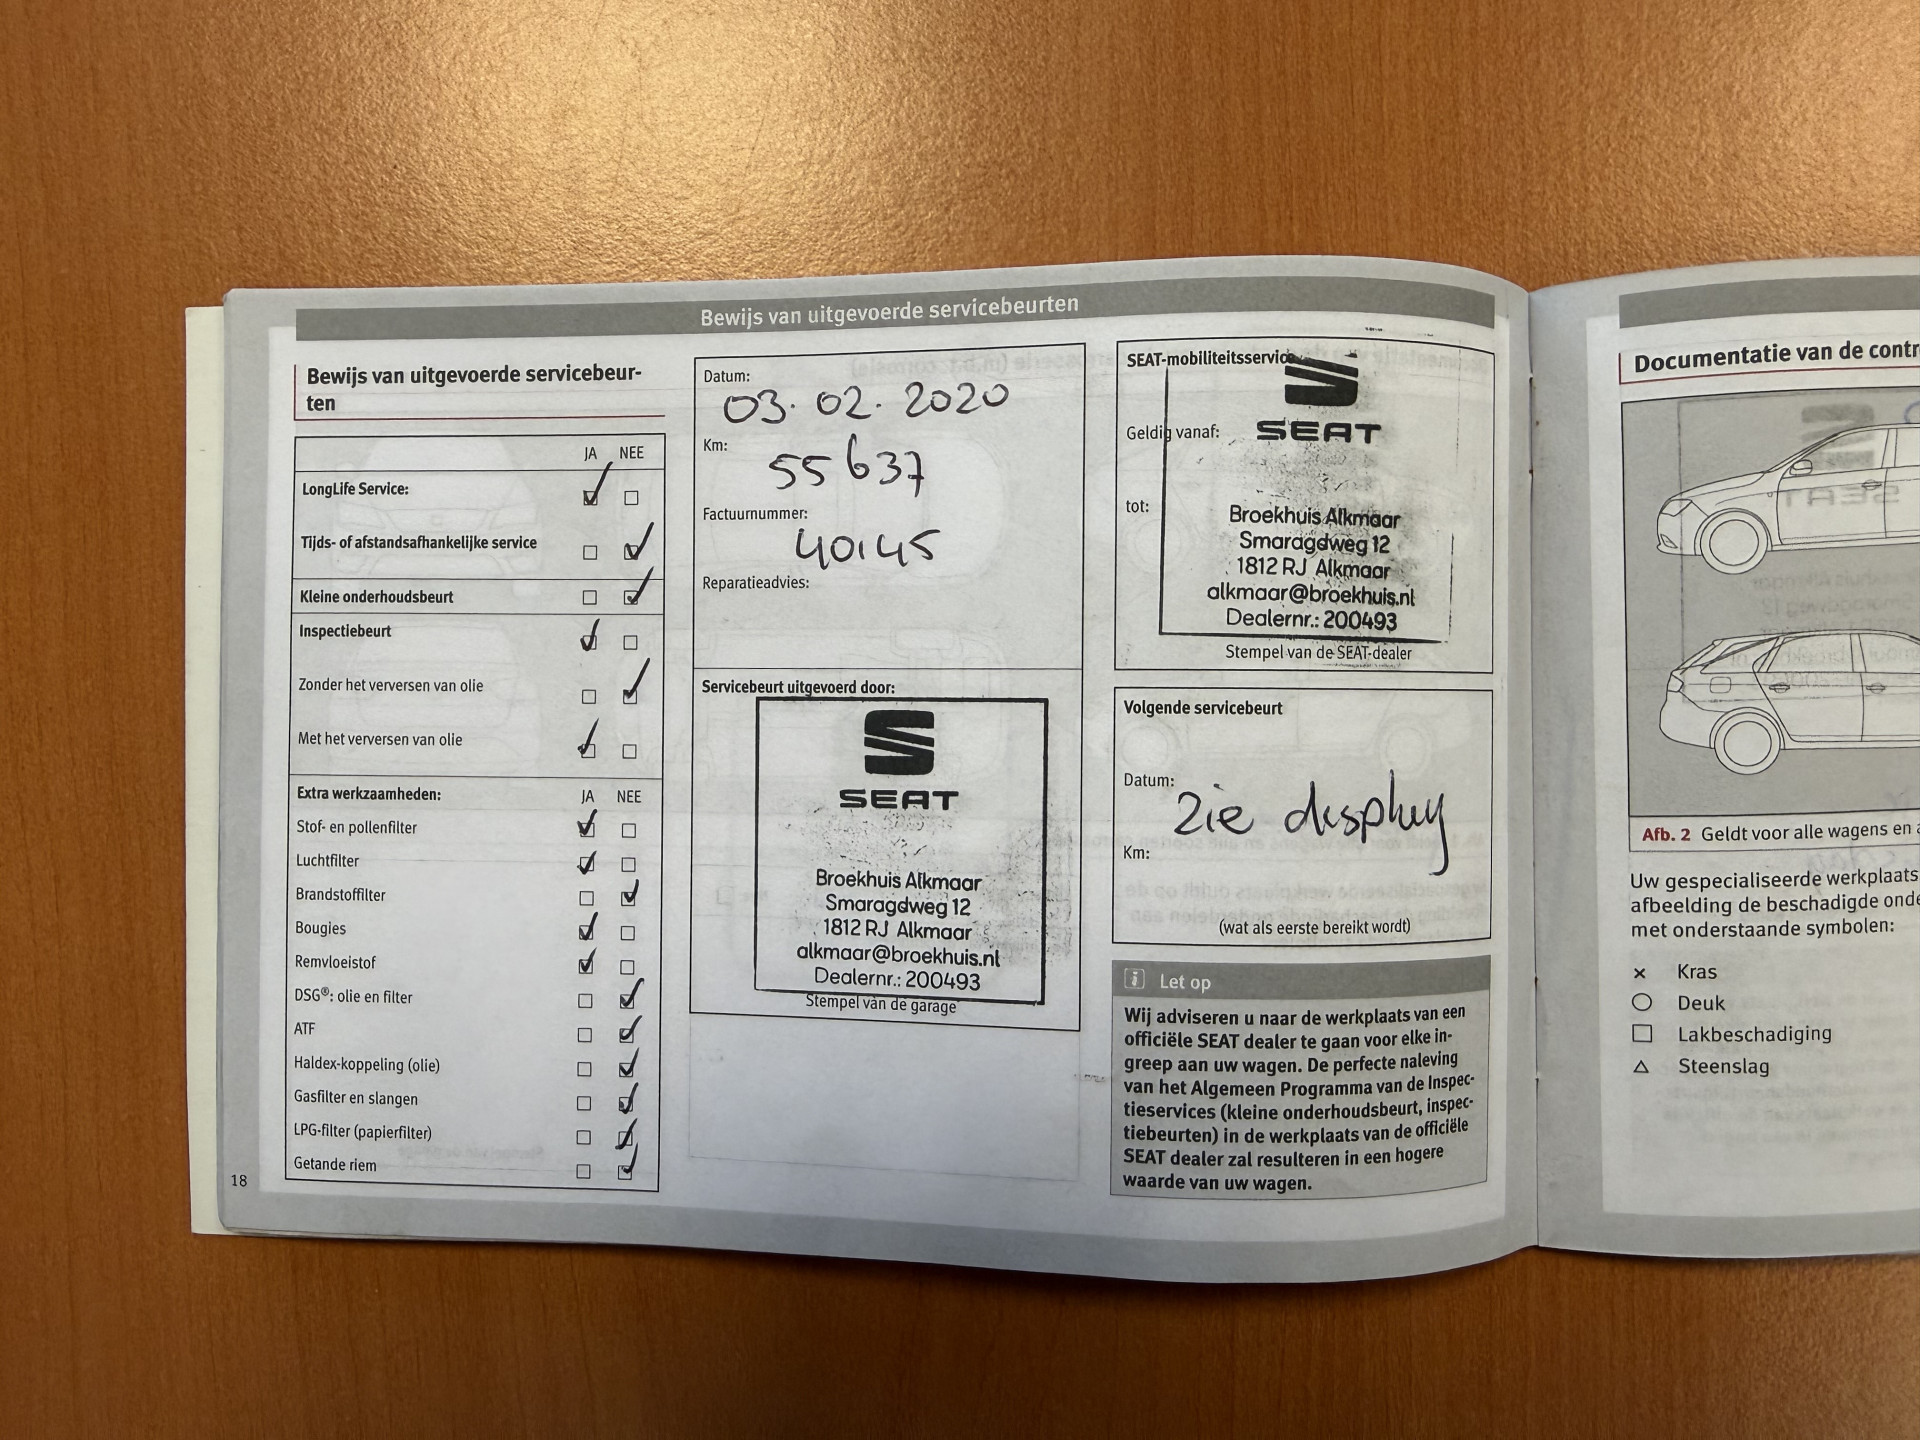 Bewijs van uitgevoerde servicebeurten
Bewijs van uitgevoerde servicebeur-
ten
JA NEE
LongLife Service:
Tijds- of afstandsafhankelijke service
Kleine onderhoudsbeurt
Inspectiebeurt
Zonder het verversen van olie
Met het verversen van olie
Extra werkzaamheden: JA NEE
Stof- en pollenfilter
Luchtfilter
Brandstoffilter
Bougies
Remvloeistof
DSG®: olie en filter
ATF
Haldex-koppeling (olie)
Gasfilter en slangen
LPG-filter (papierfilter)
Getande riem
18
Datum:
03. 02. 2020
Km:
55637
Factuurnummer:
40145
Reparatieadvies:
Servicebeurt uitgevoerd door:
SEAT
Broekhuis Alkmaar
Smaragdweg 12
1812 RJ Alkmaar
alkmaar@broekhuis.nl
Dealernr.: 200493
Stempel van de garage
SEAT-mobiliteitsservice
Geldig vanaf:
SEAT
tot:
Broekhuis Alkmaar
Smaragdweg 12
1812 RJ Alkmaar
alkmaar@broekhuis.nl
Dealernr.: 200493
Stempel van de SEAT-dealer
Volgende servicebeurt
Datum:
Zie display
Km:
(wat als eerste bereikt wordt)
i Let op
Wij adviseren u naar de werkplaats van een
officiële SEAT dealer te gaan voor elke in-
greep aan uw wagen. De perfecte naleving
van het Algemeen Programma van de Inspec-
tieservices (kleine onderhoudsbeurt, inspec-
tiebeurten) in de werkplaats van de officiële
SEAT dealer zal resulteren in een hogere
waarde van uw wagen.
Documentatie van de contr
Afb. 2 Geldt voor alle wagens en
Uw gespecialiseerde werkplaats
afbeelding de beschadigde onde
met onderstaande symbolen:
× Kras
○ Deuk
□ Lakbeschadiging
△ Steenslag